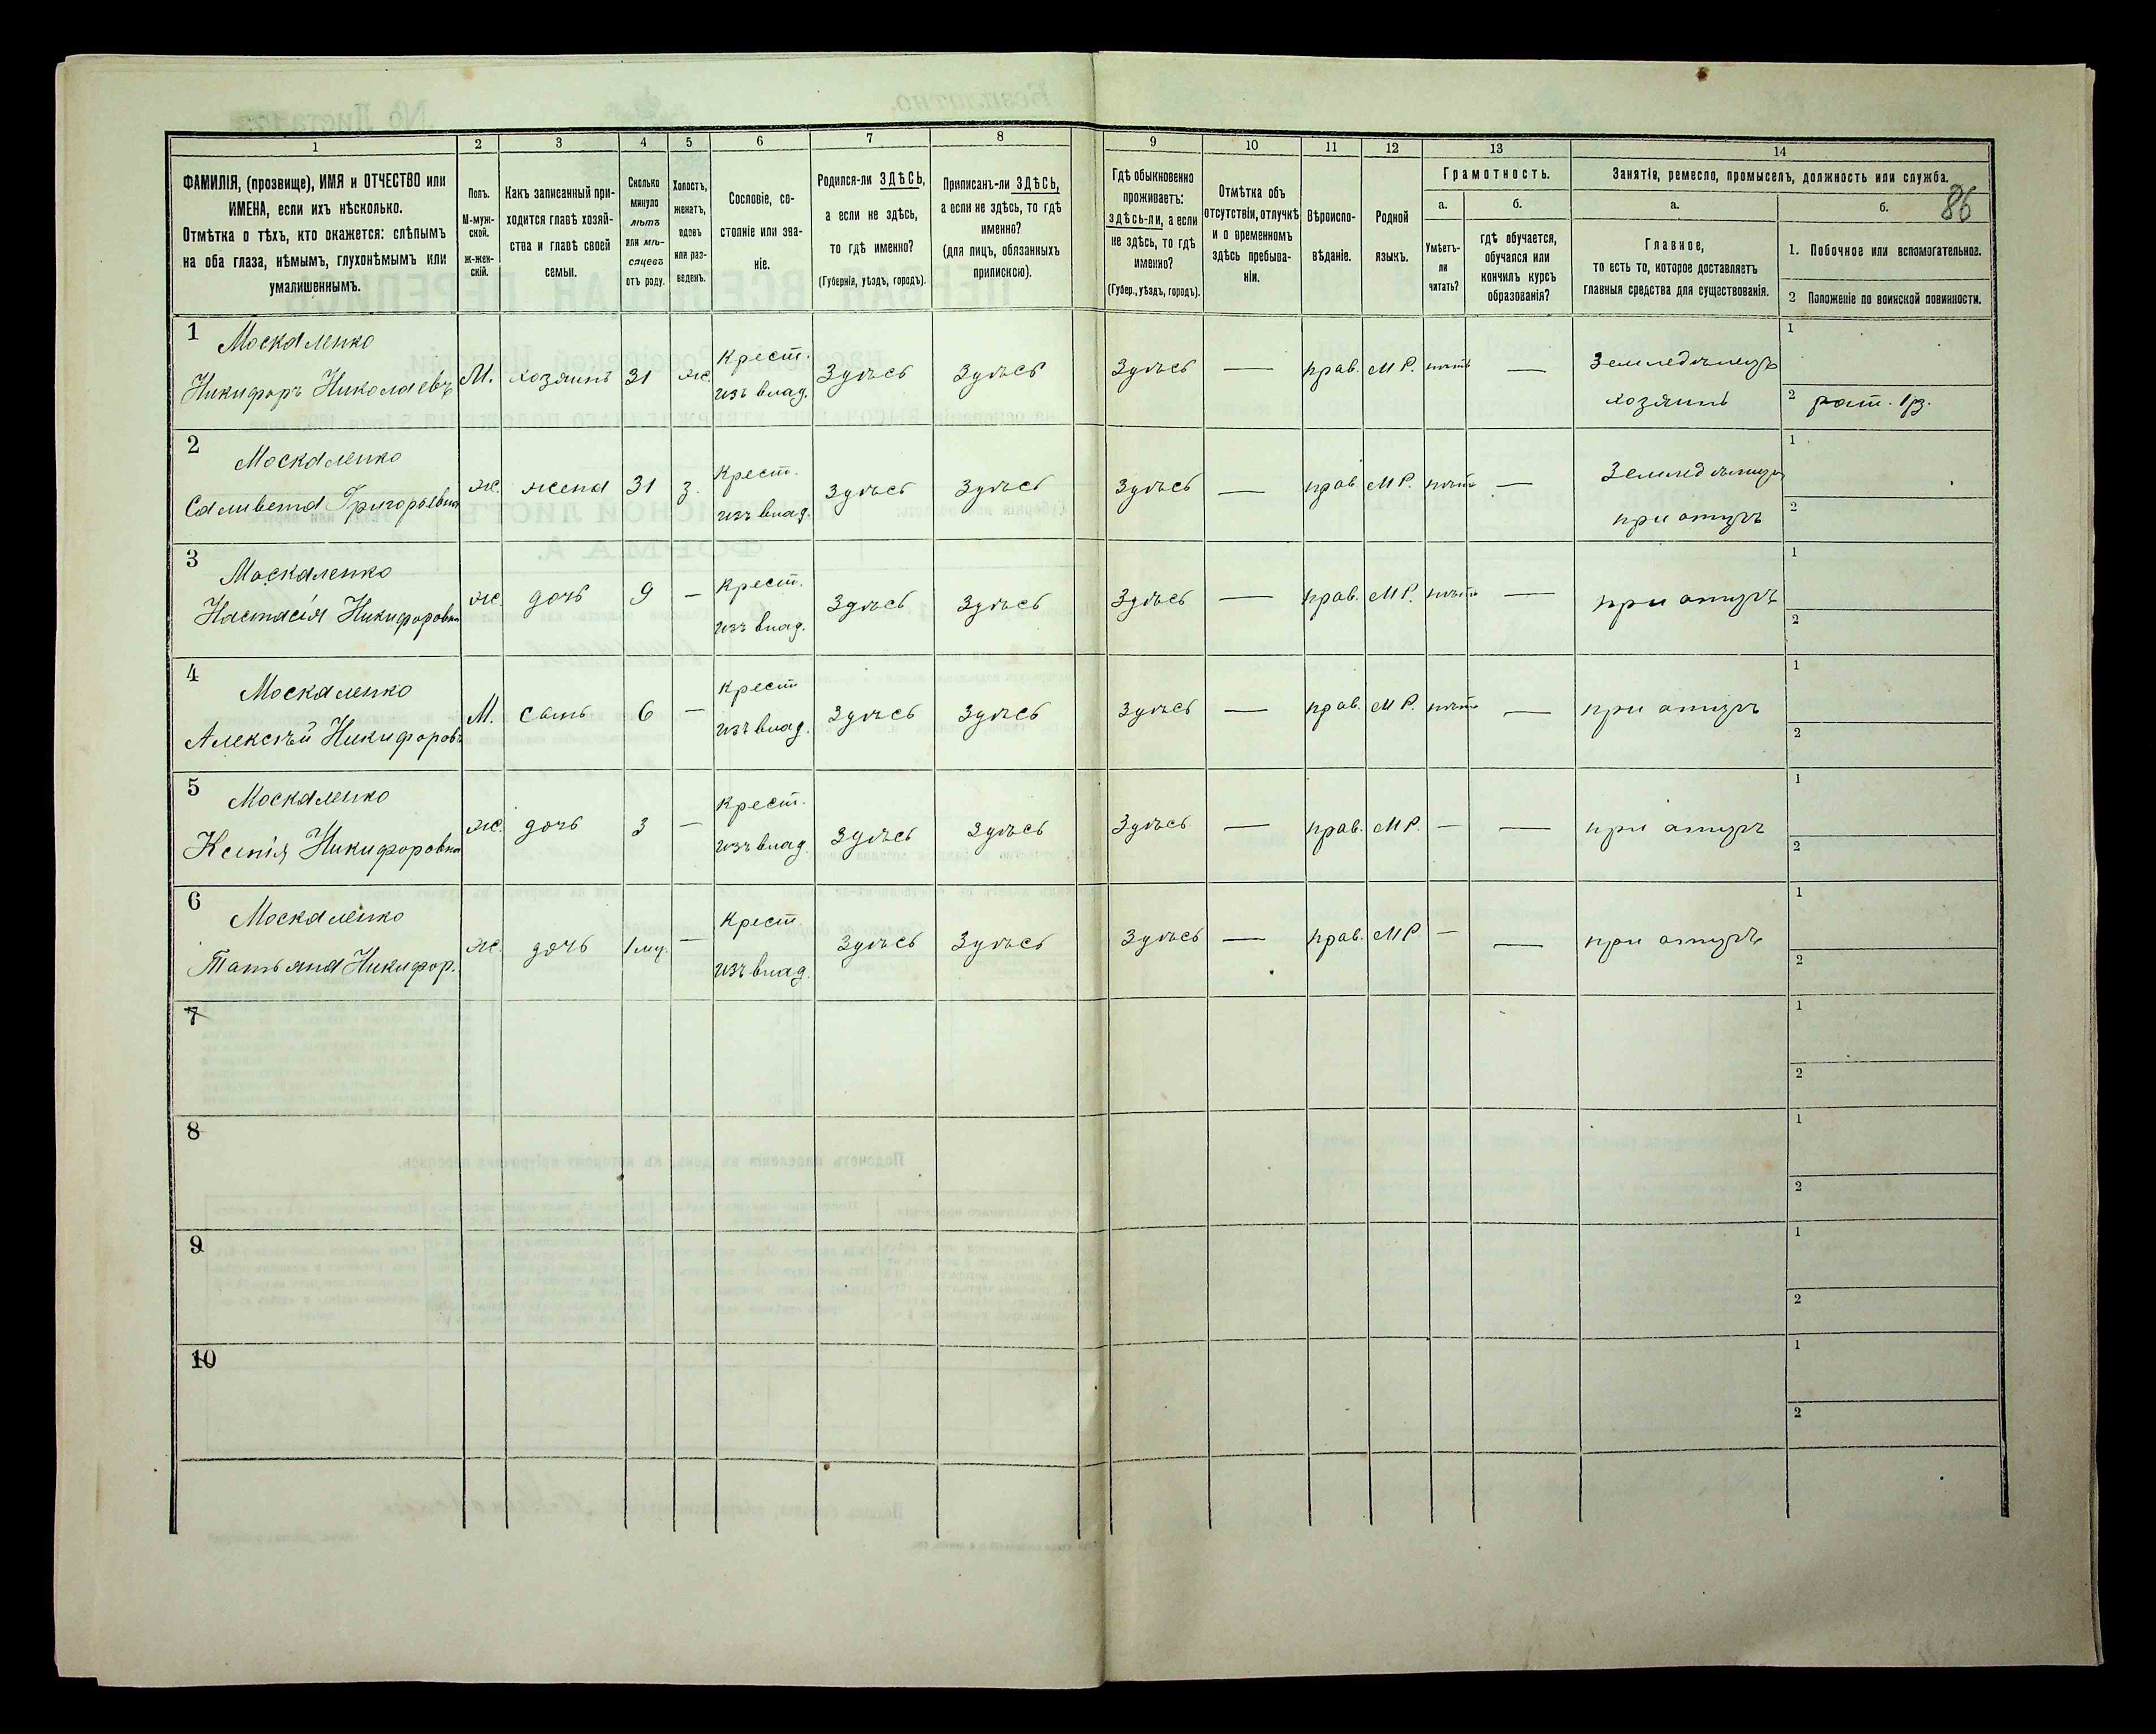 86
1 2 3 4 5 6 7 8 9 10 11 12 13 14
ФАМИЛІЯ, (прозвище), ИМЯ и ОТЧЕСТВО или
ИМЕНА, если ихъ нѣсколько.
Отмѣтка о тѣхъ, кто окажется: слѣпымъ
на оба глаза, нѣмымъ, глухонѣмымъ или
умалишеннымъ.
Полъ.
М-муж-
ской.
Ж-жен-
скій.
Какъ записанный при-
ходится главѣ хозяй-
ства и главѣ своей
семьи.
Сколько
минуло
лѣтъ
или мѣ-
сяцевъ
отъ роду.
Холостъ,
женатъ,
вдовъ
или раз-
веденъ.
Сословіе, со-
стояніе или зва-
ніе.
Родился-ли ЗДѢСЬ,
а если не здѣсь,
то гдѣ именно?
(Губернія, уѣздъ, городъ).
Приписанъ-ли ЗДѢСЬ,
а если не здѣсь, то гдѣ
именно?
(для лицъ, обязанныхъ
припискою).
Гдѣ обыкновенно
проживаетъ:
здѣсь-ли, а если
не здѣсь, то гдѣ
именно?
(Губер., уѣздъ, городъ).
Отмѣтка объ
отсутствіи, отлучкѣ
и о временномъ
здѣсь пребыва-
ніи.
Вѣроиспо-
вѣданіе.
Родной
языкъ.
Грамотность.
а.
Умѣетъ-
ли
читать?
б.
гдѣ обучается,
обучался или
кончилъ курсъ
образованія?
Занятія, ремесло, промыселъ, должность или служба.
а.
Главное,
то есть то, которое доставляетъ
главныя средства для существованія.
б.
1. Побочное или вспомогательное.
2 Положеніе по воинской повинности.
1 Москаленко Крест. Земледѣлецъ 1
Никифоръ Николаевъ М. хозяинъ 31 ж. изъ влад. Здѣсь Здѣсь Здѣсь — прав. МР. нѣтъ — хозяинъ 2 рат. 1 рз.
2 Москаленко Крест. Земледѣлица 1
Саливета Григорьевна ж. жена 31 з. изъ влад. Здѣсь Здѣсь Здѣсь — прав МР. нѣтъ — при отцѣ 2
3 Москаленко Крест. 1
Настасія Никифоровна ж. дочь 9 — изъ влад. Здѣсь Здѣсь Здѣсь — прав. МР. нѣтъ — при отцѣ 2
4 Москаленко Крест 1
Алексѣй Никифоровъ М. сынъ 6 — изъ влад. Здѣсь Здѣсь Здѣсь — прав. МР. нѣтъ — при отцѣ 2
5 Москаленко Крест. 1
Ксенія Никифоровна ж. дочь 3 — изъ влад. Здѣсь Здѣсь Здѣсь — прав. МР. — — при отцѣ 2
6 Москаленко Крест. 1
Татьяна Никифор. ж. дочь 1 мц. — изъ влад. Здѣсь Здѣсь Здѣсь — прав. МР — — при отцѣ 2
7 1
2
8 1
2
9 1
2
10 1
2